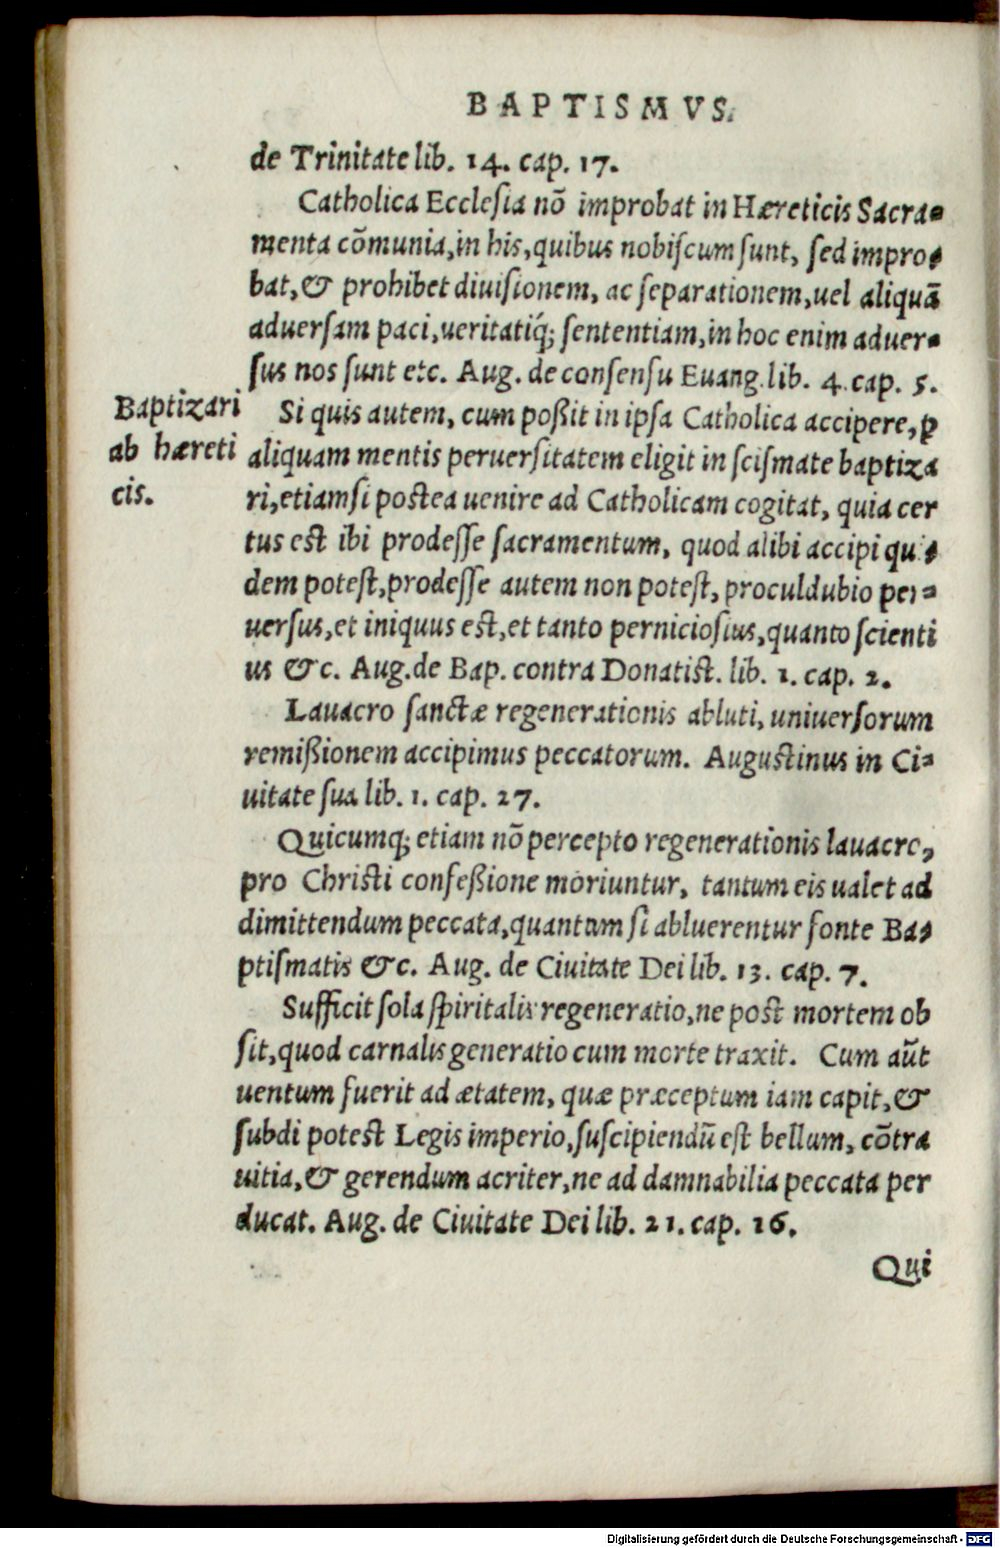 BAPTISMVS.
de Trinitate lib. 14. cap. 17.
Catholica Ecclesia nõ improbat in Hæreticis Sacra-
menta cõmunia, in his, quibus nobiſcum ſunt, ſed impro-
bat, & prohibet diuiſionem, ac ſeparationem, uel aliquã
aduerſam paci, ueritatiq́; ſententiam, in hoc enim aduer-
ſus nos ſunt etc. Aug. de conſenſu Euang. lib. 4. cap. 5.
Baptizari
ab hæreti
cis.
Si quis autem, cum poßit in ipſa Catholica accipere, ꝑ
aliquam mentis peruerſitatem eligit in ſciſmate baptiza
ri, etiamſi poſtea uenire ad Catholicam cogitat, quia cer
tus eſt ibi prodeſſe ſacramentum, quod alibi accipi qui-
dem poteſt, prodeſſe autem non poteſt, proculdubio per-
uerſus, et iniquus eſt, et tanto pernicioſius, quanto ſcienti
us &c. Aug. de Bap. contra Donatiſt. lib. 1. cap. 2.
Lauacro ſanctæ regenerationis abluti, uniuerſorum
remißionem accipimus peccatorum. Auguſtinus in Ci-
uitate ſua lib. 1. cap. 27.
Quicumq; etiam nõ percepto regenerationis lauacro,
pro Chriſti confeßione moriuntur, tantum eis ualet ad
dimittendum peccata, quantum ſi abluerentur fonte Ba-
ptiſmatis &c. Aug. de Ciuitate Dei lib. 13. cap. 7.
Sufficit ſola ſpiritalis regeneratio, ne poſt mortem ob
ſit, quod carnalis generatio cum morte traxit. Cum aũt
uentum fuerit ad ætatem, quæ præceptum iam capit, &
ſubdi poteſt Legis imperio, ſuſcipiendũ eſt bellum, cõtra
uitia, & gerendum acriter, ne ad damnabilia peccata per
ducat. Aug. de Ciuitate Dei lib. 21. cap. 16.
Qui
Digitalisierung gefördert durch die Deutsche Forschungsgemeinschaft - DFG